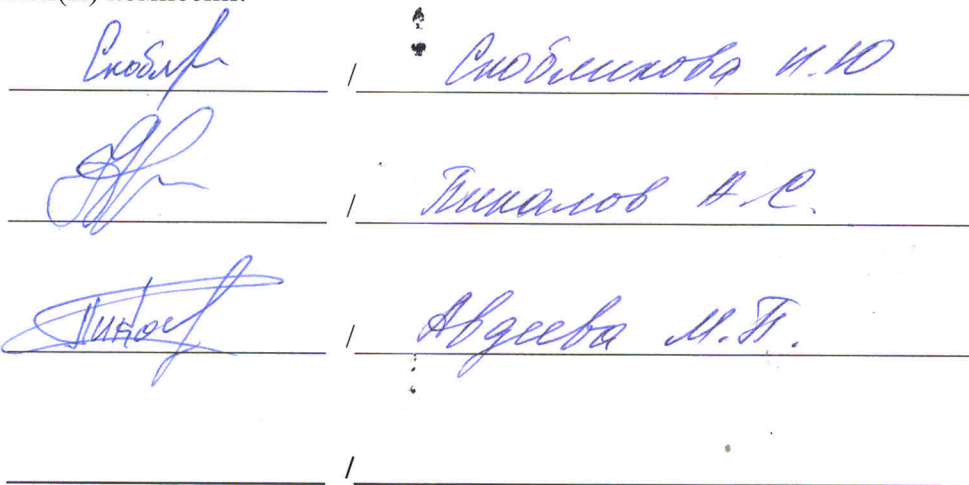 комиссии:
Скобл / Скобликова И.Ю
/ Пикалов А.С.
/ Авдеева М.П.
/